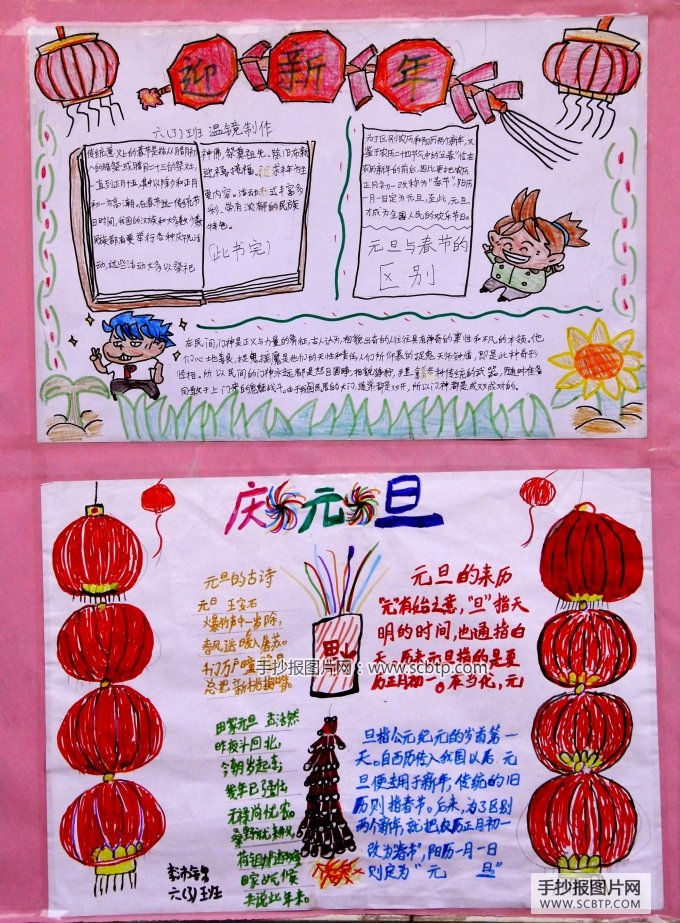 迎新年
六(3)班 温镜制作
传统意义上的春节是指从腊月初
八的腊祭或腊月二十三的祭灶,
一直到正月十五,其中以除夕和正月
初一为高潮。在春节这一传统节
日期间,我国的汉族和大多数少数
民族都有要举行各种庆祝活
动,这些活动大多以祭祀
神佛,祭奠祖先,除旧布新
迎禧接福、祈求丰年为主
要内容。活动形式丰富多
彩,带有浓郁的民族
特色。
(此书完)
为了区别农历和阳历两个新年,又
鉴于农历二十四节气中的"立春"恰在农
历新年的前后,因此便把农历
正月初一改称为"春节",阳历
一月一日定为元旦,至此,元旦
才成为全国人民的欢乐节日。
元旦与春节的
区别
在民间,门神是正义与力量的象征,古人认为,相貌出奇的人往往具有神奇的禀性和不凡的本领。他
们心地善良,捉鬼擒魔是他们的天性和责任,人们所仰慕的捉鬼天师钟馗,即是此种奇形
怪相。所以民间的门神永远都怒目圆睁,相貌狰狞,手里拿着各种传统的武器,随时准备
同敢于上门来的鬼魅战斗。由于我国民居的大门,通常都是两扇对开,所以门神都是成双成对的。
庆元旦
元旦的古诗
元旦 王安石
爆竹声中一岁除,
春风送暖入屠苏。
千门万户曈曈日
总把新桃换旧符。
田家元旦 孟浩然
昨夜斗回北,
今朝岁起东;
我年已强仕
无禄尚忧农。
桑野就耕父
荷锄随牧童
田家占气候
共说此年丰。
元旦的来历
"元"有始之意,"旦"指天
明的时间,也通指白
天。历来元旦指的是夏
历正月初一。在当代,元
旦指公元纪元的岁首第一
天。自西历传入我国以后,元
旦便专用于新年,传统的旧
历则指春节。后来,为了区别
两个新年,就把农历正月初一
改为"春节",阳历一月一日
则定为"元旦"
六(3)班
手抄报图片网:www.scbtp.com
手抄报图片网
WWW.SCBTP.COM